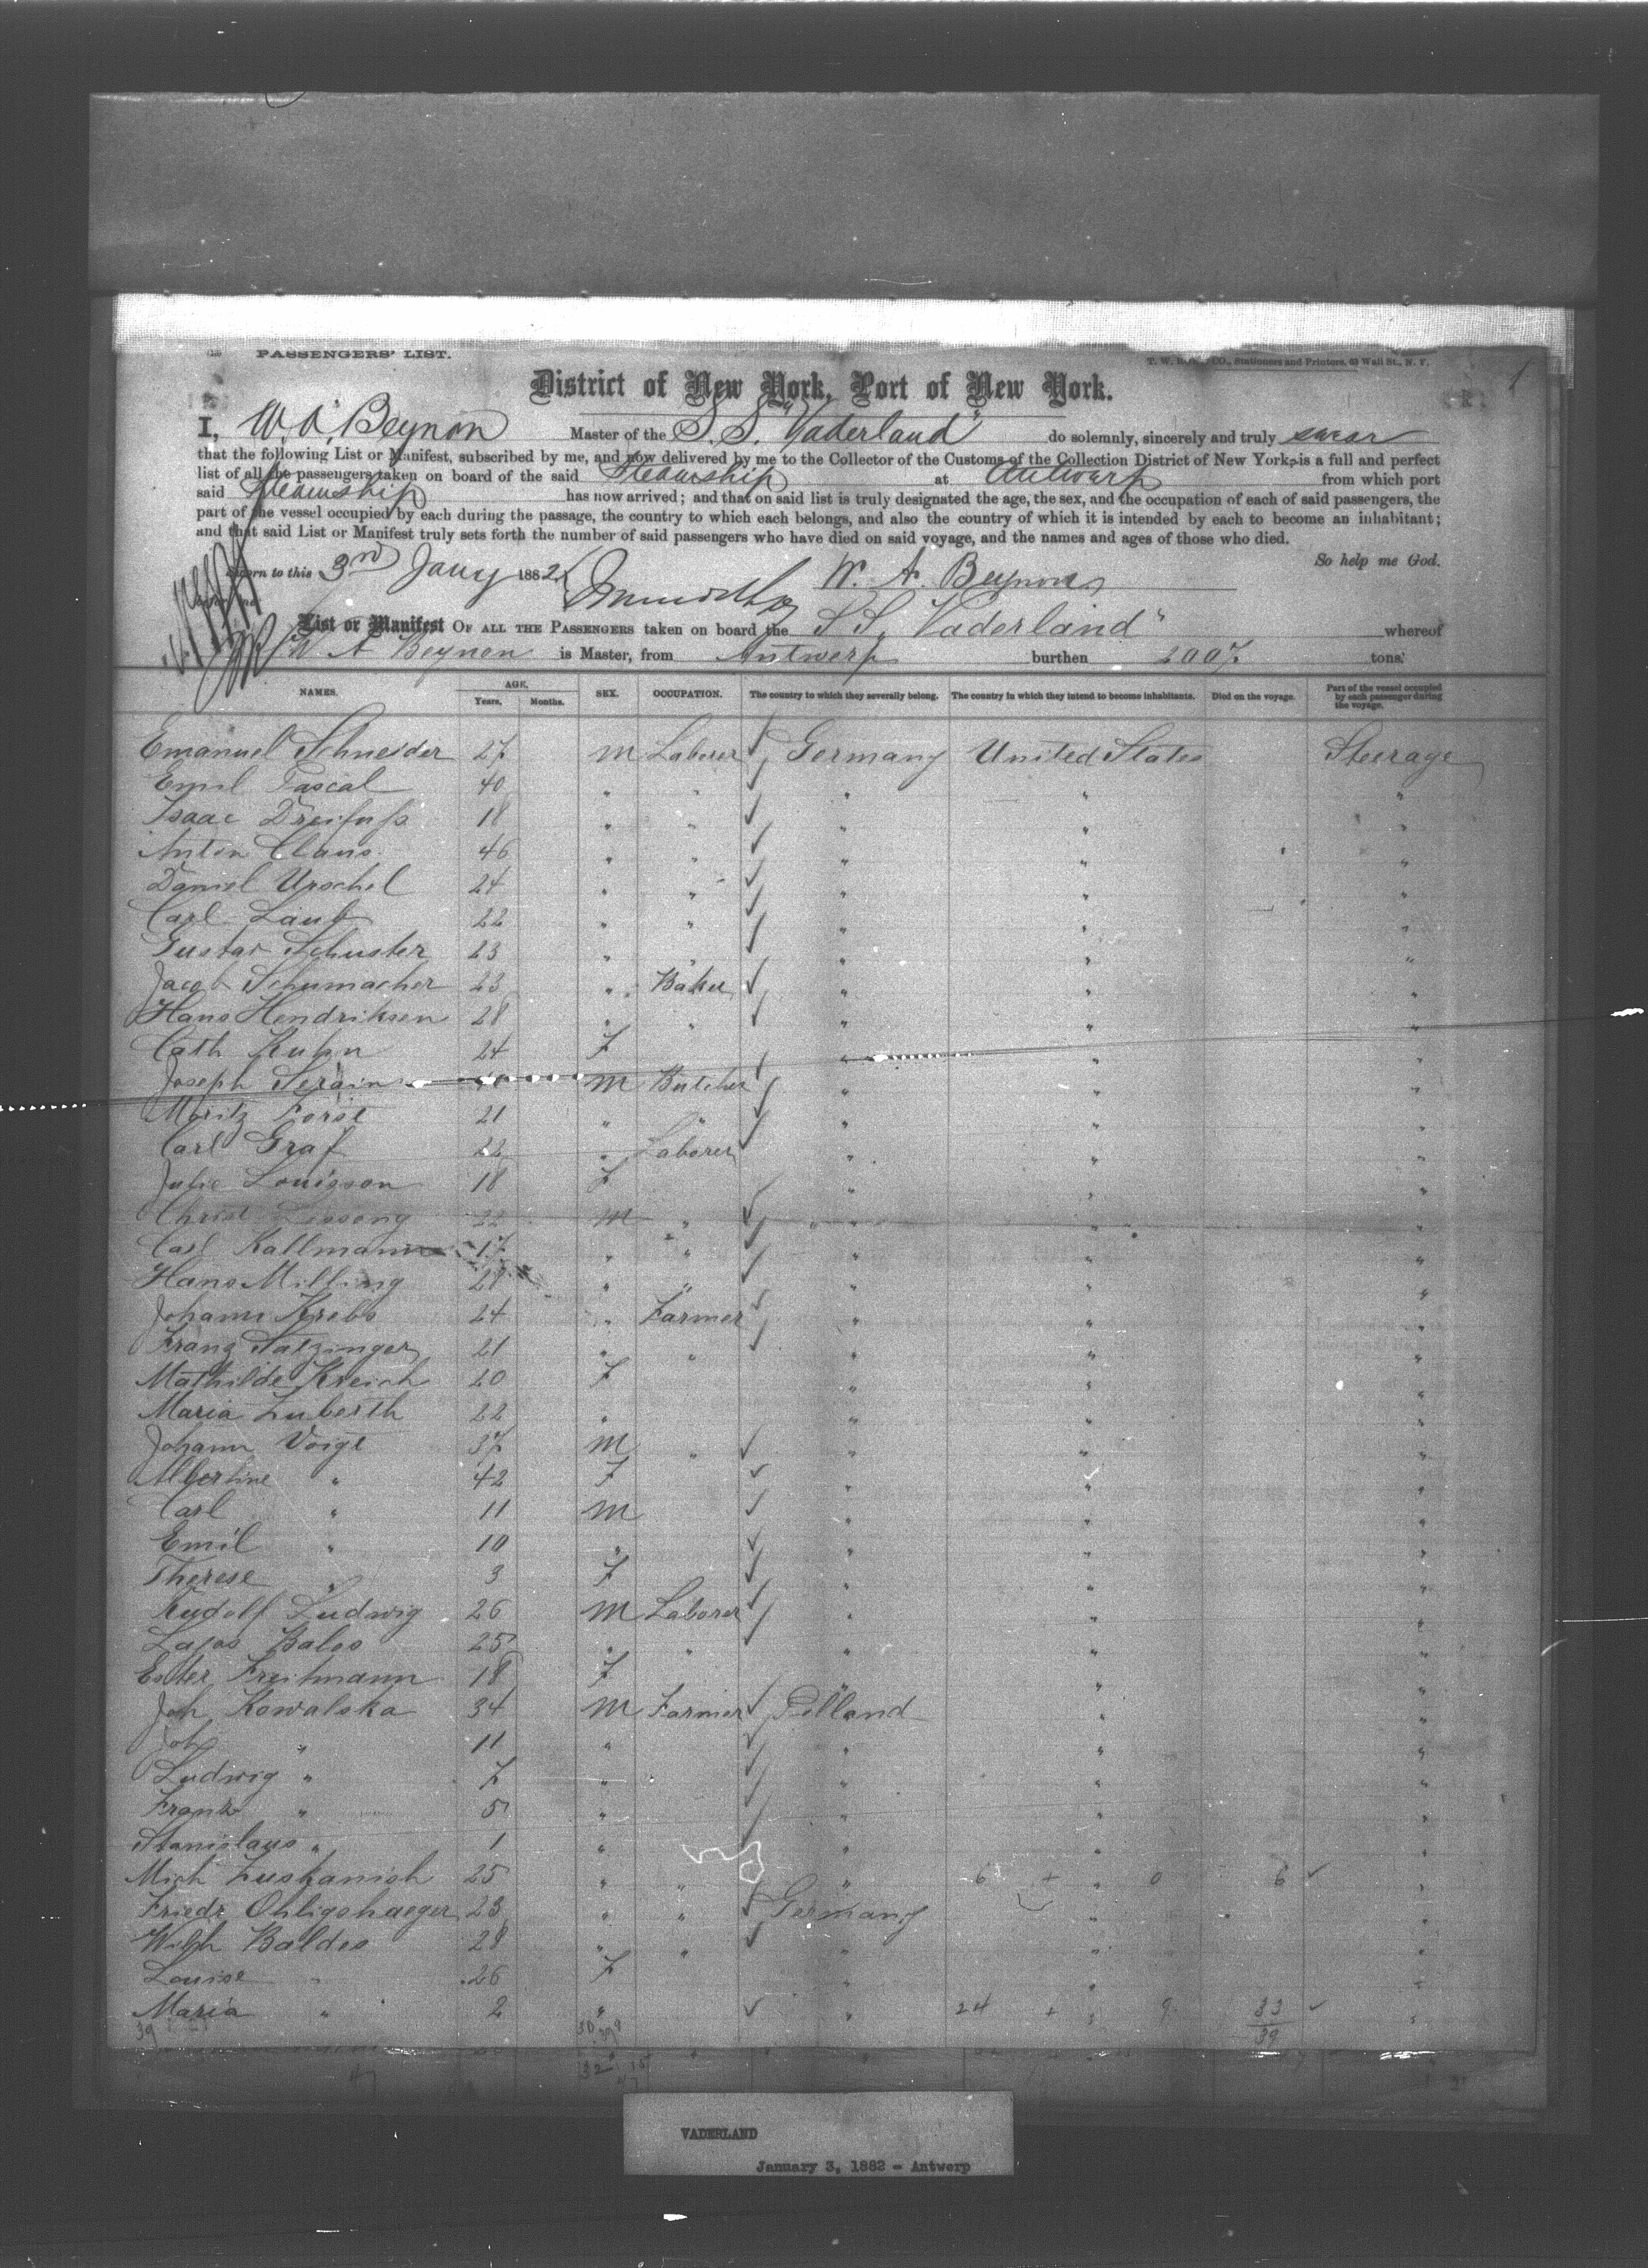 PASSENGERS' LIST.
T. W. & CO., Stationers and Printers, 63 Wall St., N. Y.
1
District of New York, Port of New York.
I, W. A. Beynon Master of the S. S. "Vaderland" do solemnly, sincerely and truly swear
that the following List or Manifest, subscribed by me, and now delivered by me to the Collector of the Customs of the Collection District of New York, is a full and perfect
list of all the passengers taken on board of the said Steamship at Antwerp from which port
said Steamship has now arrived; and that on said list is truly designated the age, the sex, and the occupation of each of said passengers, the
part of the vessel occupied by each during the passage, the country to which each belongs, and also the country of which it is intended by each to become an inhabitant;
and that said List or Manifest truly sets forth the number of said passengers who have died on said voyage, and the names and ages of those who died.
So help me God.
Sworn to this 3rd Jany 1882 W. A. Beynon
List or Manifest OF ALL THE PASSENGERS taken on board the S S. Vaderland" whereof
W A Beynon is Master, from Antwerp burthen 2007 tons.
NAMES. AGE. Years. Months. SEX. OCCUPATION. The country to which they severally belong. The country in which they intend to become inhabitants. Died on the voyage. Part of the vessel occupied by each passenger during the voyage.
Emanuel Schneider 27 M Laborer Germany United States Steerage
Emil Pascal 40 " " " " "
Isaac Dreifuss 18 " " " " "
Anton Claus 46 " " " " "
Daniel Urschel 24 " " " " "
Carl Laub 22 " " " " "
Gustav Schuster 23 " " " " "
Jacob Schumacher 23 " Baker " " "
Hans Hendriksen 28 " " " " "
Cath Kuhn 24 F " " "
Joseph Serain M Butcher " " "
Moritz Forst 21 " " " " "
Carl Graf 22 " Laborer " " "
Julie Louigson 18 F " " "
Christ Lessong 22 M " " " "
Carl Kallmann 17 " " " " "
Hans Milling 28 " " " " "
Johann Krebs 24 " Farmer " " "
Franz Satzinger 21 " " " " "
Mathilde Kreich 20 F " " "
Maria Luberth 22 " " " "
Johann Voigt 37 M " " " "
Albertine " 42 F " " "
Carl " 11 M " " "
Emil " 10 " " " "
Therese " 3 F " " "
Rudolf Ludwig 26 M Laborer " " "
Lajos Balos 25 " " " " "
Ester Freitmann 18 F " " "
Joh Kowalska 34 M Farmer Polland " "
Joh " 11 " " " "
Ludwig " 7 " " " "
Frank " 5 " " " "
Stanislaus " 1 " " " "
Mich Luskanish 25 " " " 6 + " 0 6 "
Friedr Ohligshaeger 23 " " Germany " "
Wilh Baldes 28 " " " " "
Louise " 26 F " " "
Maria " 2 " " 24 + " 9 33 "
39
39
VADERLAND
January 3, 1882 - Antwerp